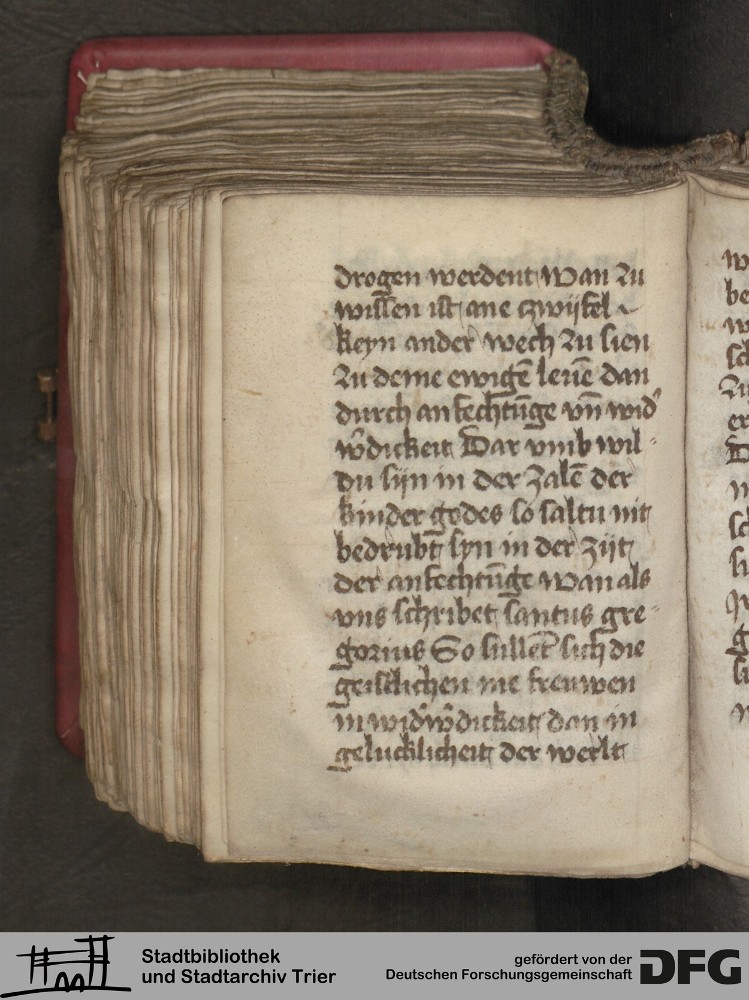 drogen werdent wan zu
wissen ist ane czwijfel
keyn ander wech zu sien
zu deme ewigē leuē dan
durch anfechtūge vn̄ wid'
w'dickeit Dar vmb wil
du sijn in der zalē der
kinder godes so saltu nit
bedrubt syn in der zijt
der anfechtūge wan als
vns schribet santus gre
gorius So sullēt sich die
geistlichen me freuwen
in wid'w'dickeit dan in
gelucklicheit der werlt
Stadtbibliothek
und Stadtarchiv Trier
gefördert von der
Deutschen Forschungsgemeinschaft
DFG